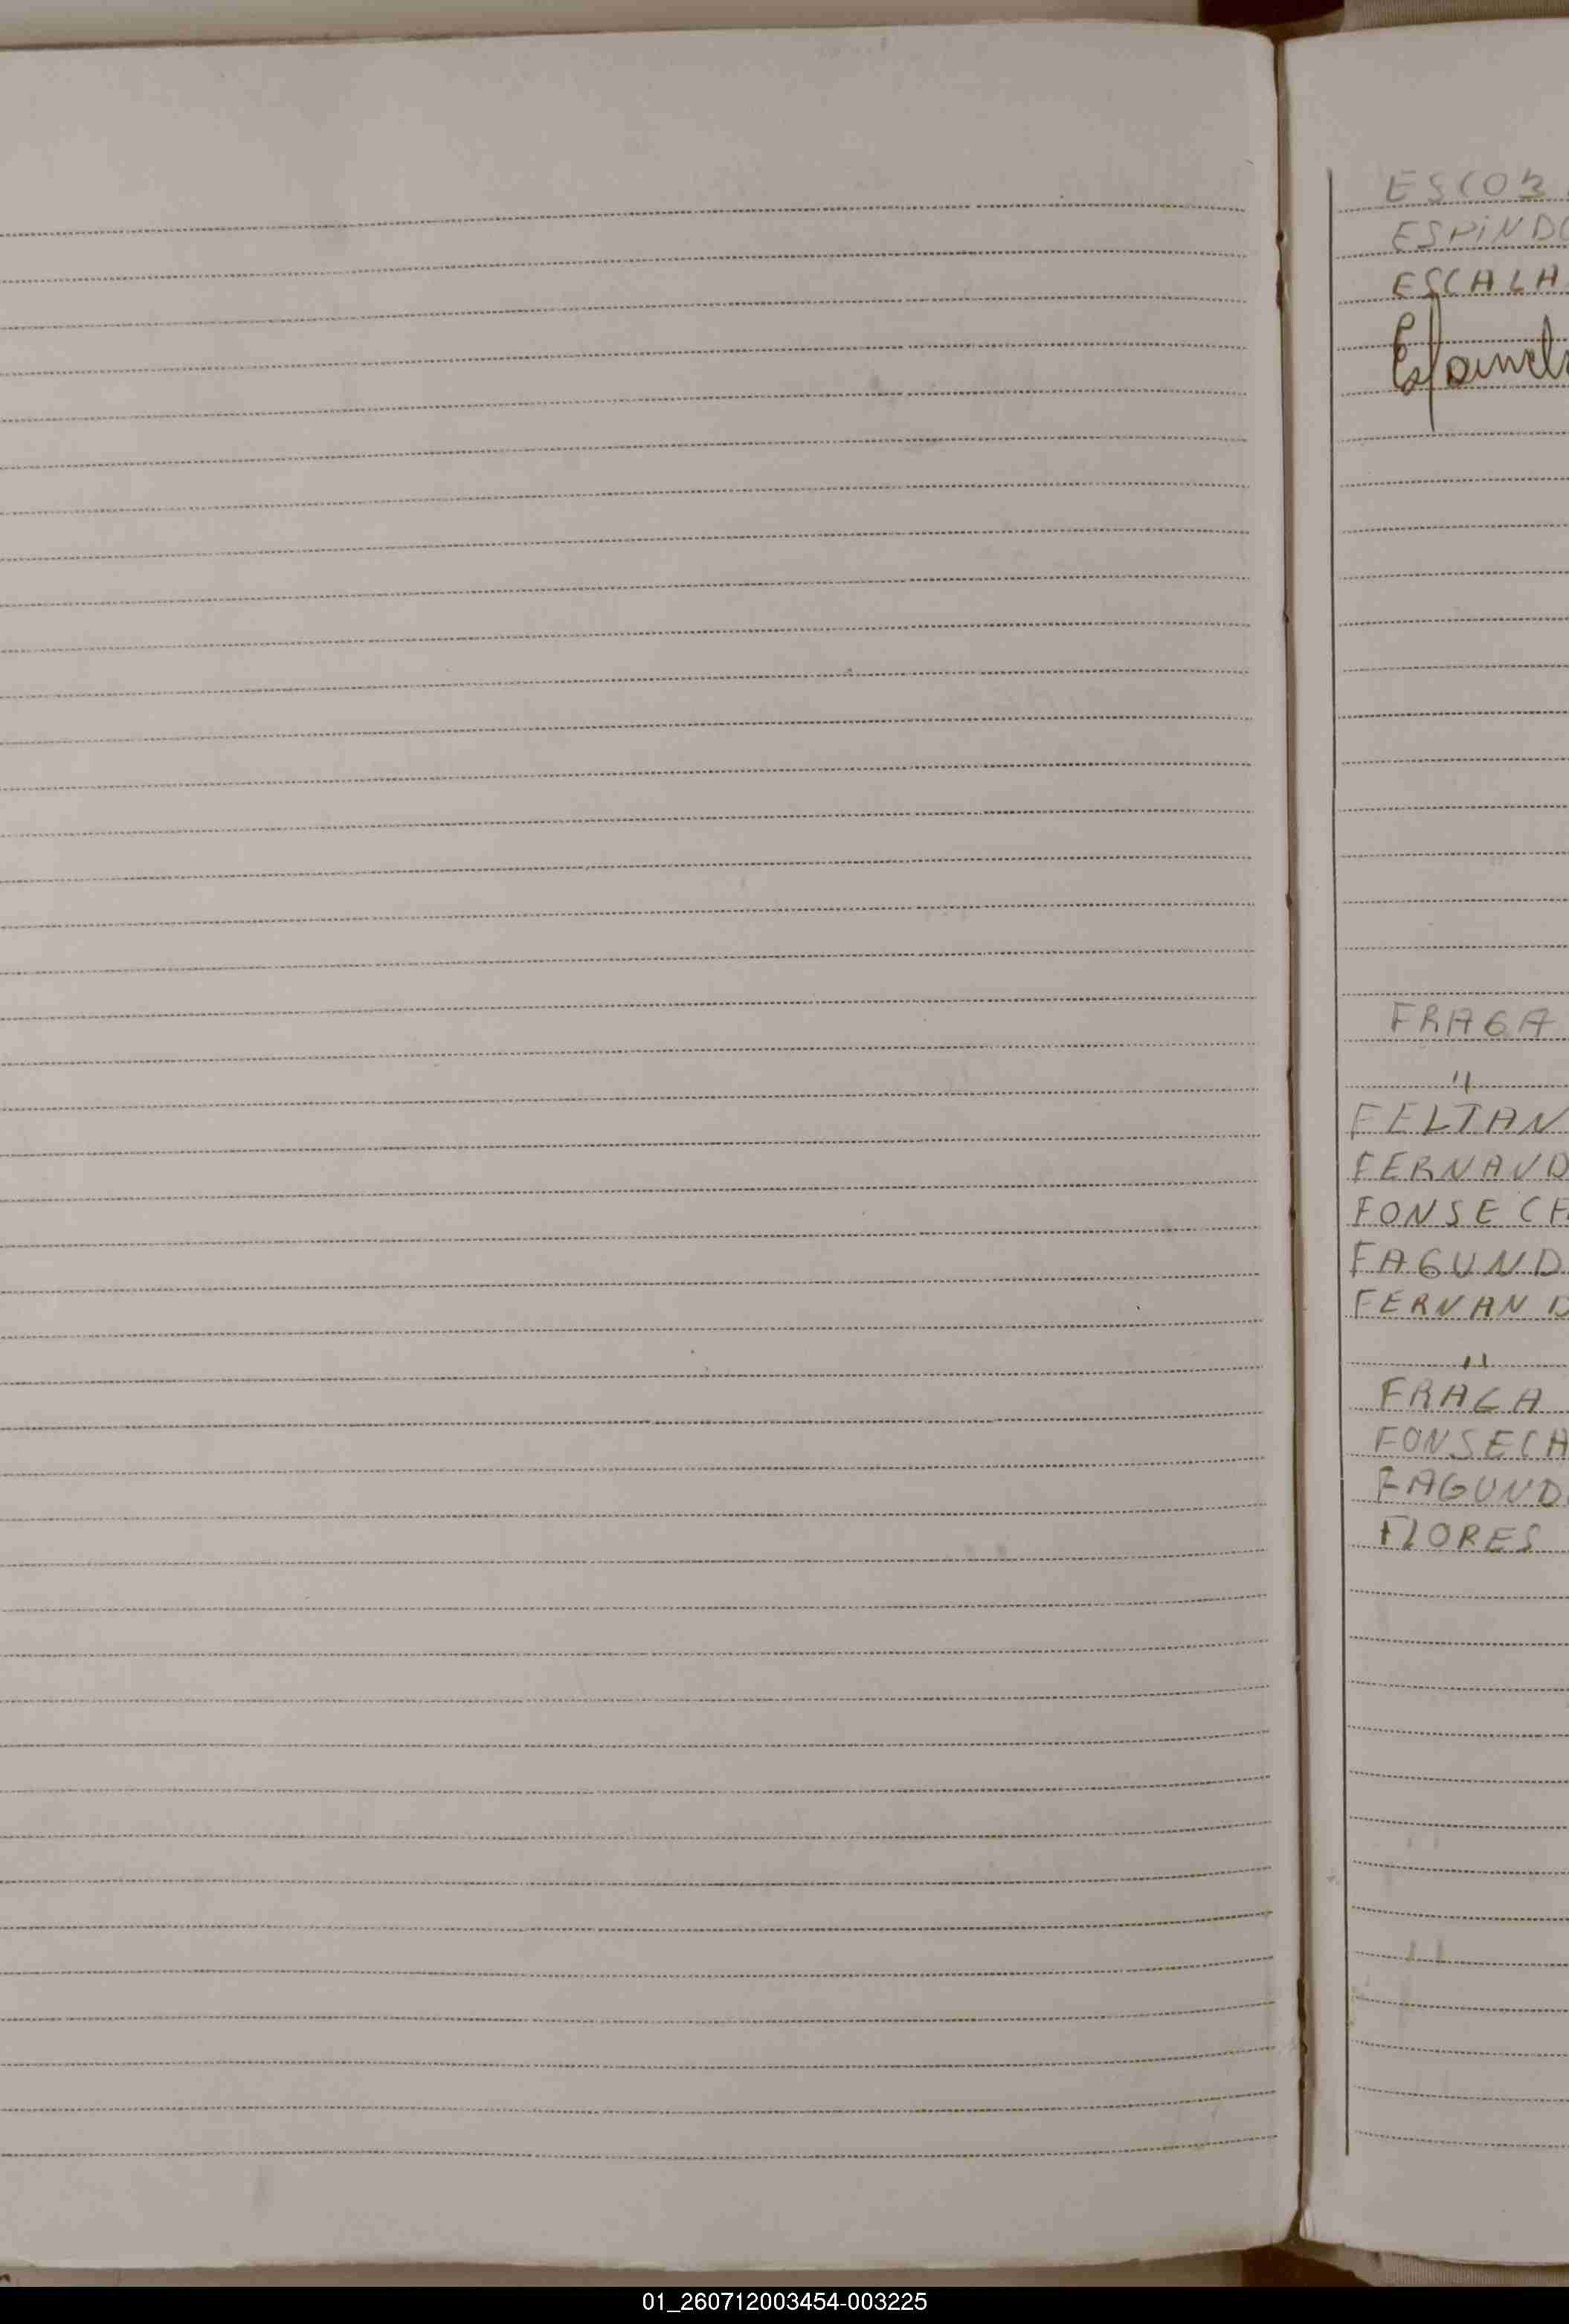 ESCOB
ESPINDO
ESCALA
FRAGA
"
FELTAN
FERNAND
FONSECA
FAGUND
FERNAND
"
FRAGA
FONSECA
FAGUND
FLORES
01_260712003454-003225